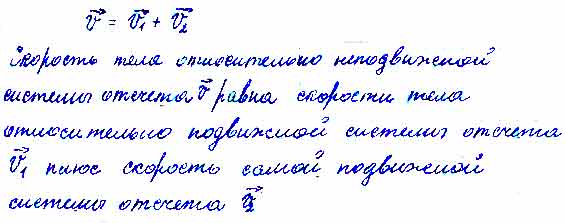 v⃗ = v⃗₁ + v⃗₂
Скорость тела относительно неподвижной
системы отсчета v⃗ равна скорости тела
относительно подвижной системы отсчета
v⃗₁ плюс скорость самой подвижной
системы отсчета v⃗₂